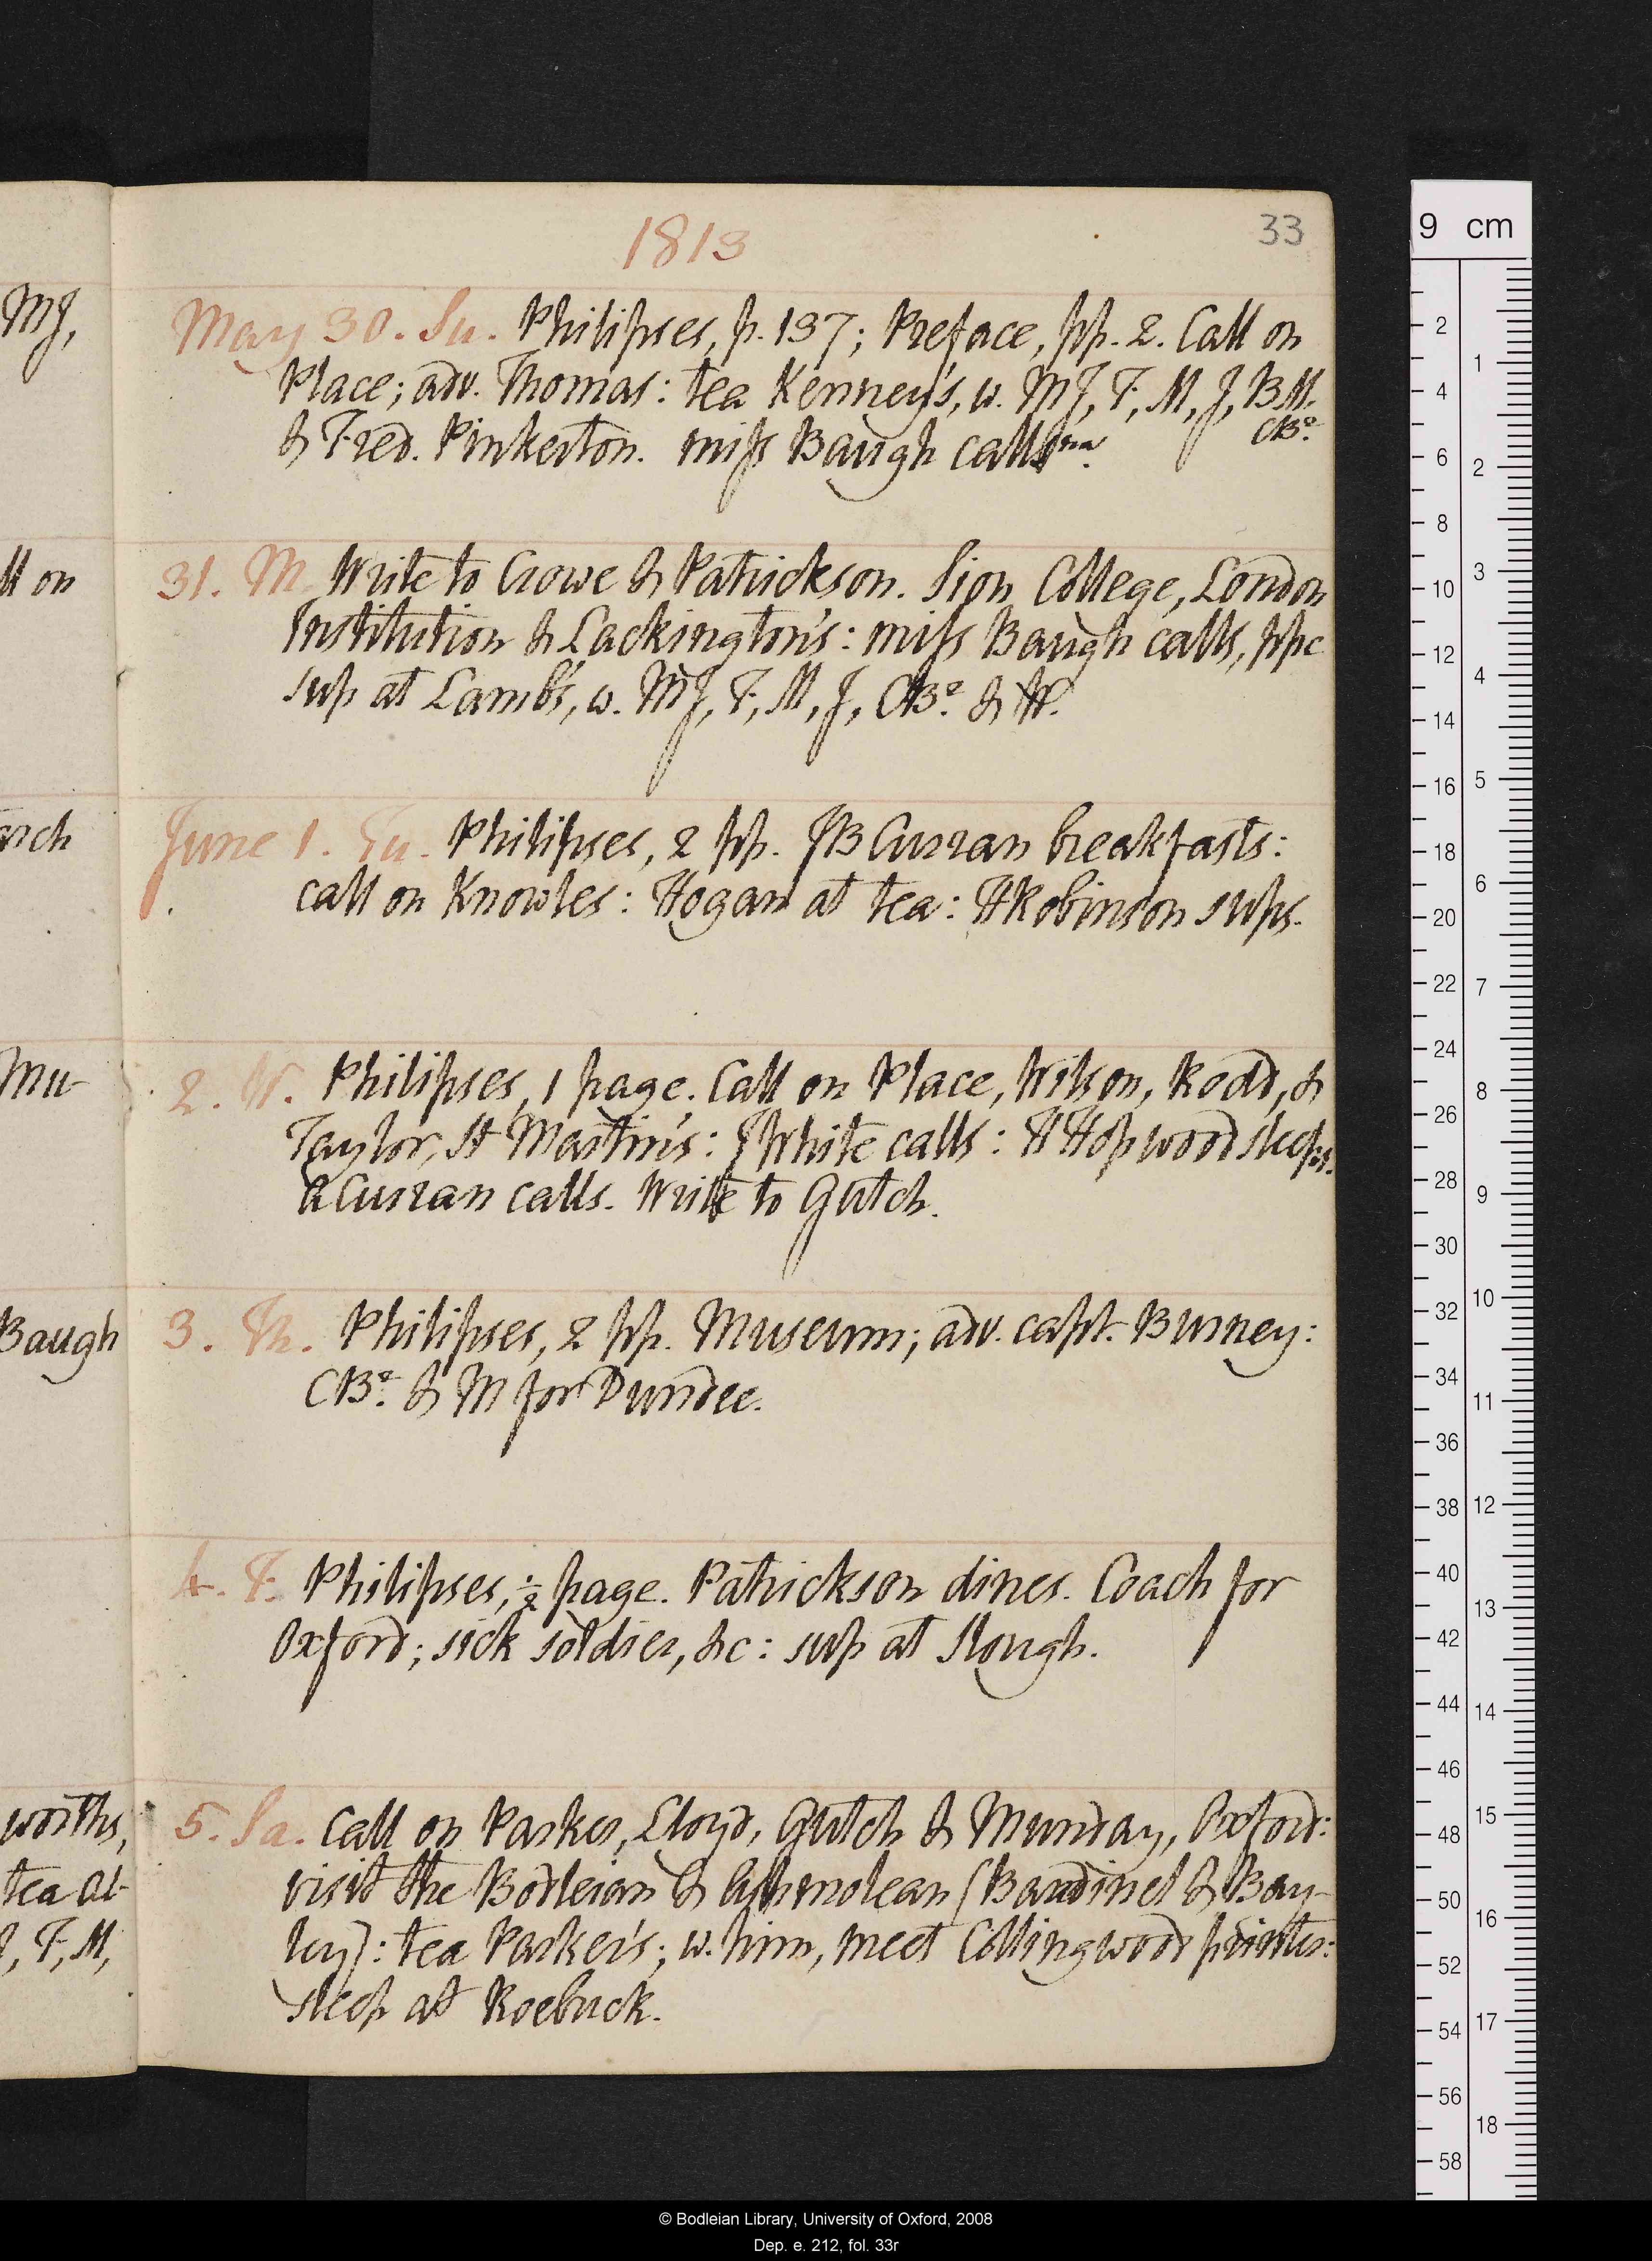 1813
33
May 30. Su. Philipses, p. 137; Preface, pp. 2. Call on
Place; adv. Thomas: tea Kenney's, w. MJ, F, M, J, BM.
CBe.
& Fred. Pinkerton. miss Baugh calls na.
31. M. Write to Crowe & Patrickson. Sion College, London
Institution & Lackington's: miss Baugh calls, ppc
sup at Lamb's, w. MJ, F, M, J, CBe. & W.
June 1. Tu. Philipses, 2 pp. JB Curran breakfasts:
call on Knowles: Hogan at tea: HRobinson sups.
2. W. Philipses, 1 page. Call on Place, Wilson, Rodd, &
Taylor, St Martin's: JWhite calls: HHopwood sleeps.
Curran calls. Write to Gutch.
3. Th. Philipses, 2 pp. Museum; adv. capt. Burney:
CBe. & M for Dundee.
4. F. Philipses, ½ page. Patrickson dines. Coach for
Oxford; sick soldier, &c: sup at Slough.
5. Sa. Call on Parker, Lloyd, Gutch & Munday, Oxford:
visit the Bodleian & Ashmolean (Bandinel & Bay-
ley): tea Parker's; w. him, meet Collingwood printer:
sleep at Roebuck.
MJ,
ll on
arch
Mu-
Baugh
worths,
tea at
J, F, M,
9 cm
2 4 6 8 10 12 14 16 18 20 22 24 26 28 30 32 34 36 38 40 42 44 46 48 50 52 54 56 58
1 2 3 4 5 6 7 8 9 10 11 12 13 14 15 16 17 18
© Bodleian Library, University of Oxford, 2008
Dep. e. 212, fol. 33r